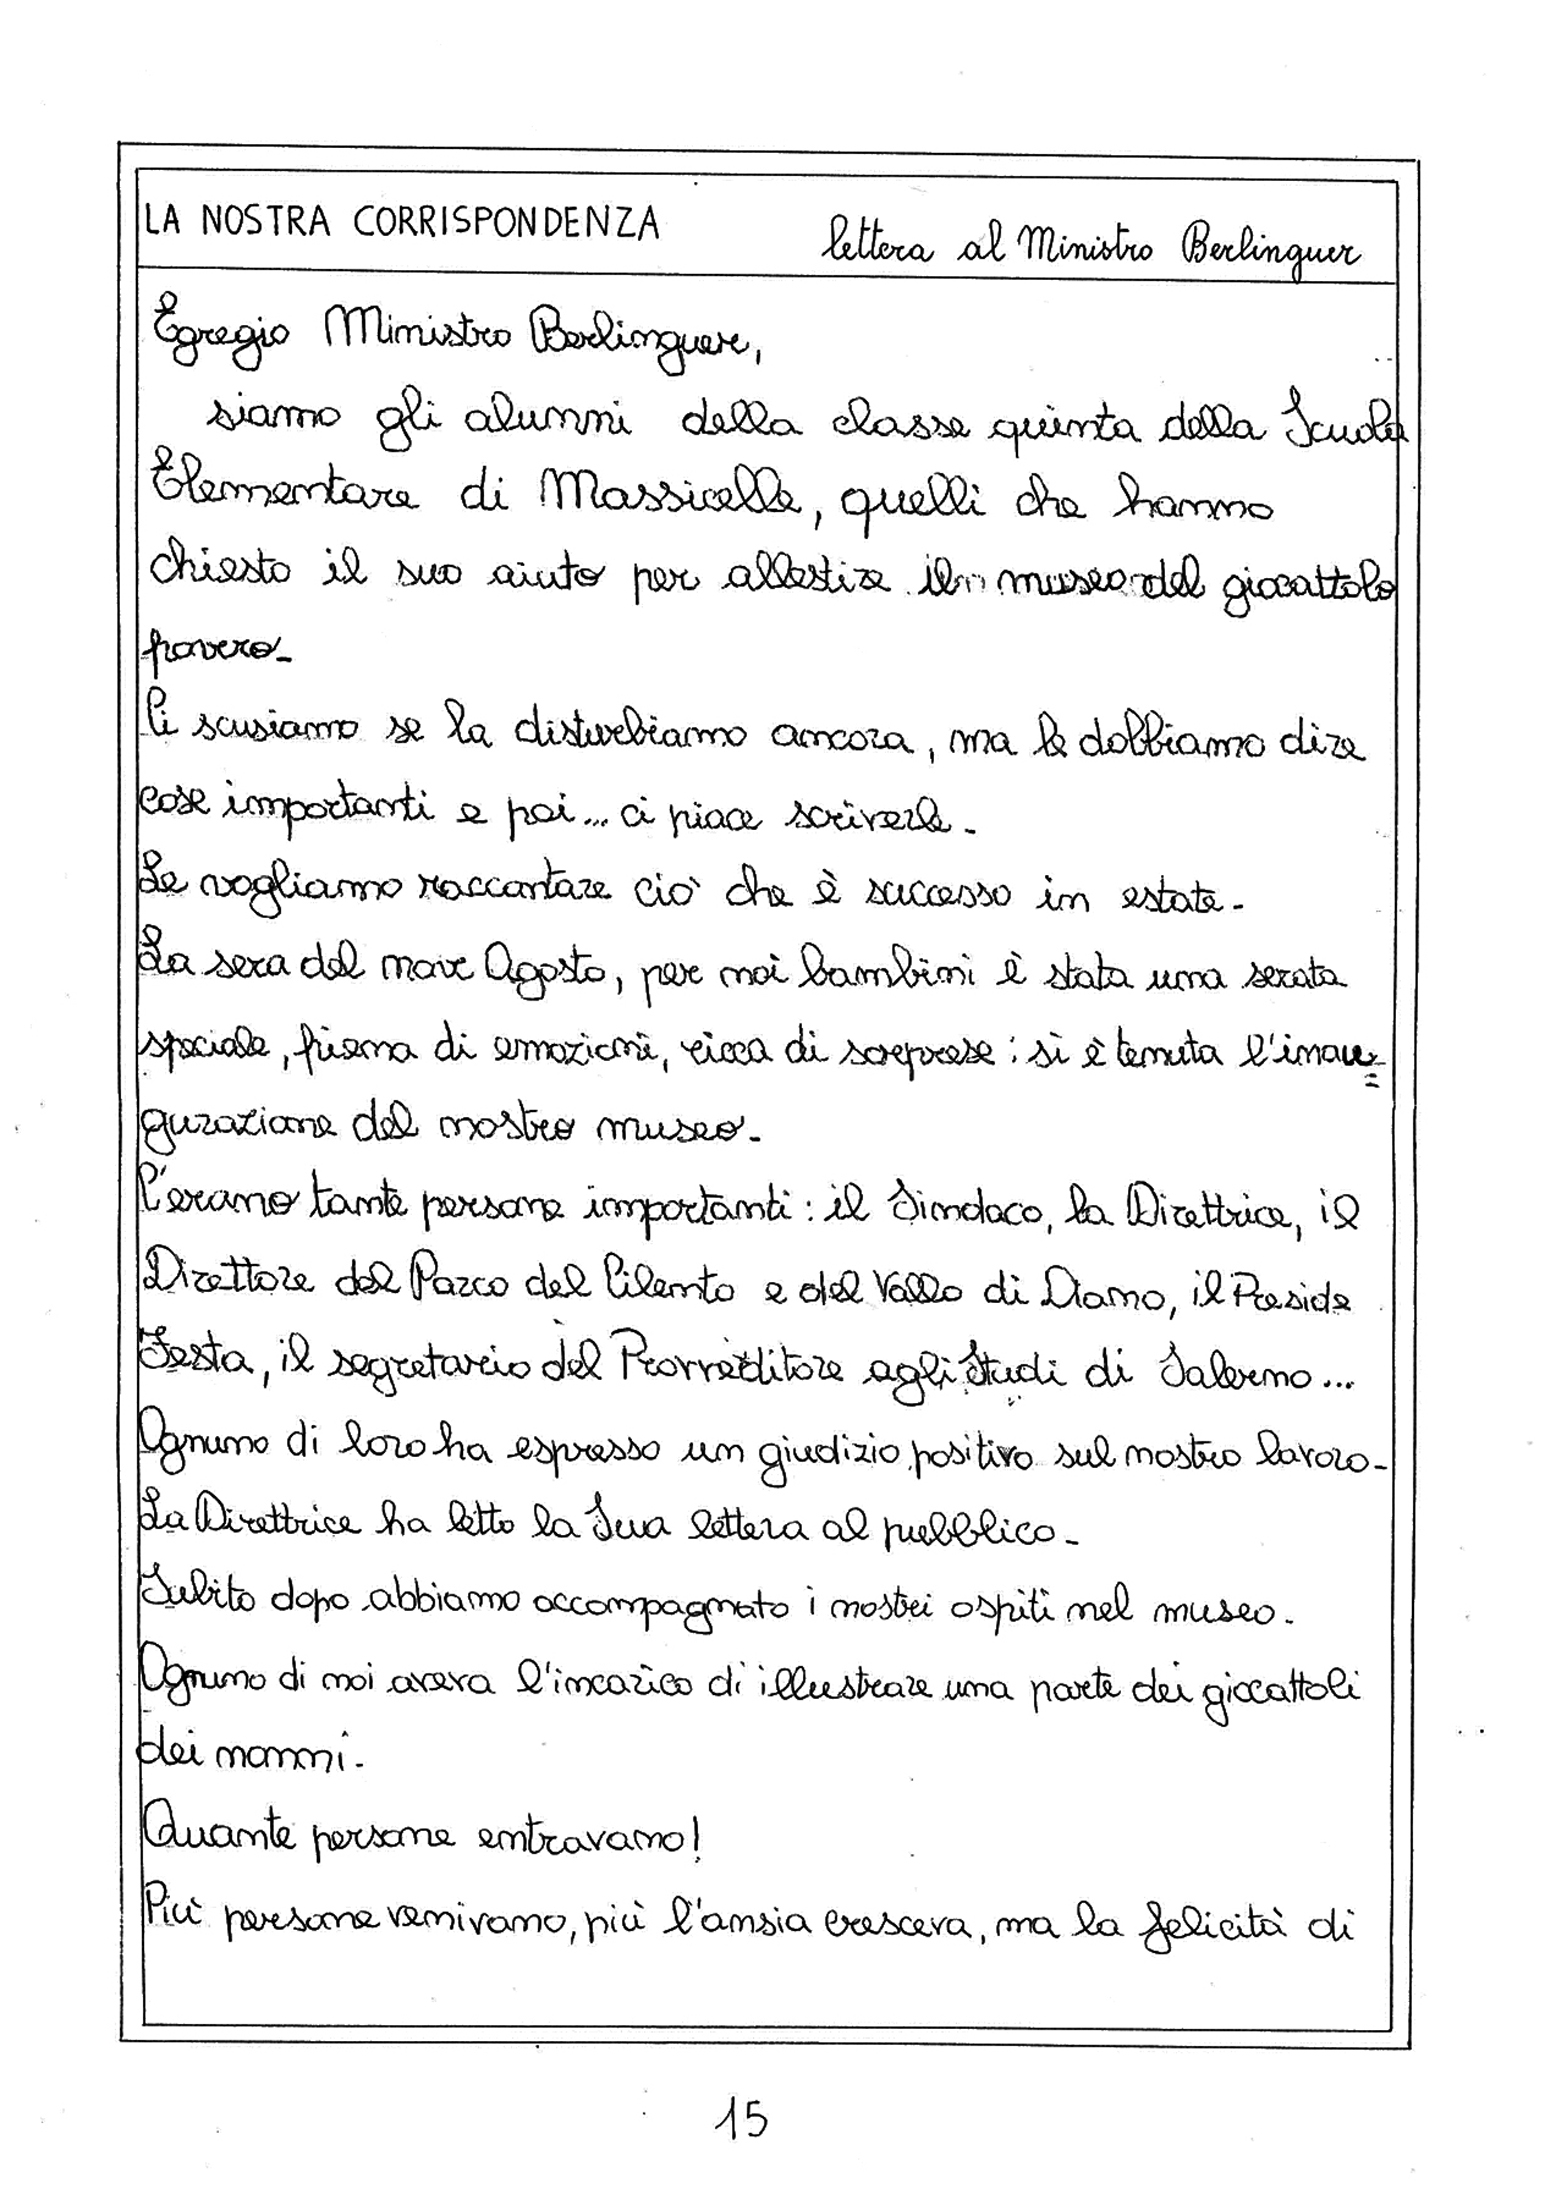 LA NOSTRA CORRISPONDENZA
lettera al Ministro Berlinguer
Egregio Ministro Berlinguer,
siamo gli alunni della classe quinta della Scuola
Elementare di Massicelle, quelli che hanno
chiesto il suo aiuto per allestire il museo del giocattolo
povero-
Ci scusiamo se la disturbiamo ancora, ma le dobbiamo dire
cose importanti e poi... ci piace scriverle-
Le vogliamo raccontare ciò che è successo in estate-
La sera del nove Agosto, per noi bambini è stata una serata
speciale, piena di emozioni, ricca di sorprese: si è tenuta l'inau=
gurazione del nostro museo-
C'erano tante persone importanti: il Sindaco, la Direttrice, il
Direttore del Parco del Cilento e del Vallo di Diano, il Preside
Testa, il segretario del Provveditore agli Studi di Salerno...
Ognuno di loro ha espresso un giudizio positivo sul nostro lavoro-
La Direttrice ha letto la Sua lettera al pubblico-
Subito dopo abbiamo accompagnato i nostri ospiti nel museo-
Ognuno di noi aveva l'incarico di illustrare una parte dei giocattoli
dei nonni-
Quante persone entravano!
Più persone venivano, più l'ansia cresceva, ma la felicità di
15